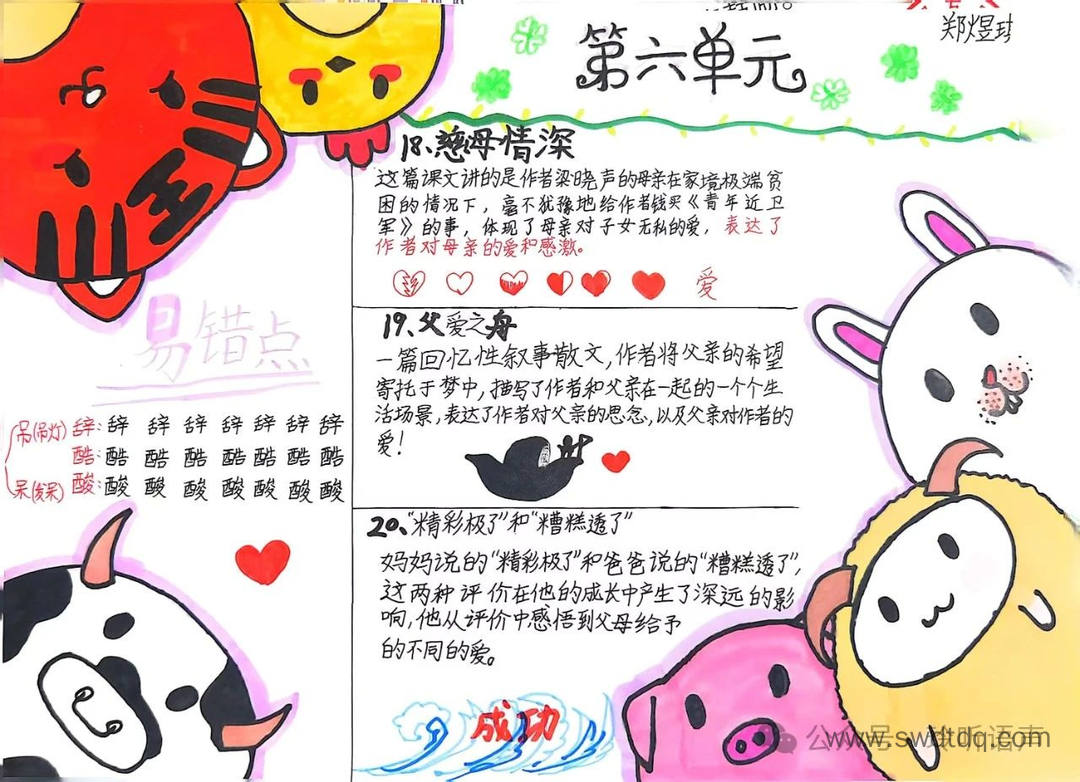 郑煜
第六单元
18、慈母情深
这篇课文讲的是作者梁晓声的母亲在家境极端贫
困的情况下，毫不犹豫地给作者钱买《青年近卫
军》的事，体现了母亲对子女无私的爱，表达了
作者对母亲的爱和感激。
爱
19、父爱之舟
一篇回忆性叙事散文，作者将父亲的希望
寄托于梦中，描写了作者和父亲在一起的一个个生
活场景，表达了作者对父亲的思念，以及父亲对作者的
爱！
20、“精彩极了”和“糟糕透了”
妈妈说的“精彩极了”和爸爸说的“糟糕透了”，
这两种评价在他的成长中产生了深远的影
响，他从评价中感悟到父母给予
的不同的爱。
成功
易错点
吊(吊灯) 辞：辞 辞 辞 辞 辞 辞 辞
酷：酷 酷 酷 酷 酷 酷 酷
呆(发呆) 酸：酸 酸 酸 酸 酸 酸 酸
公众号
www.swdtdq.com